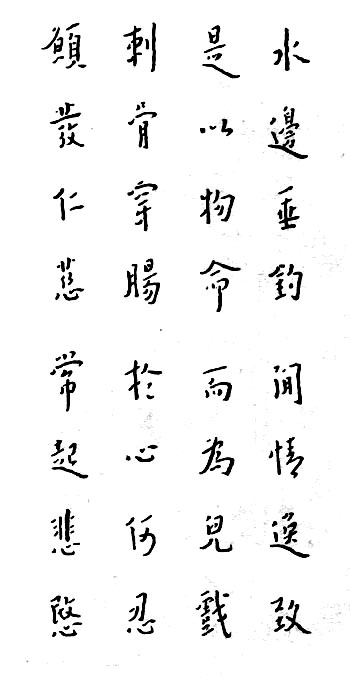 水邊垂釣閒情逸致
是以物命而為兒戲
刺骨穿腸於心何忍
願發仁慈常起悲愍